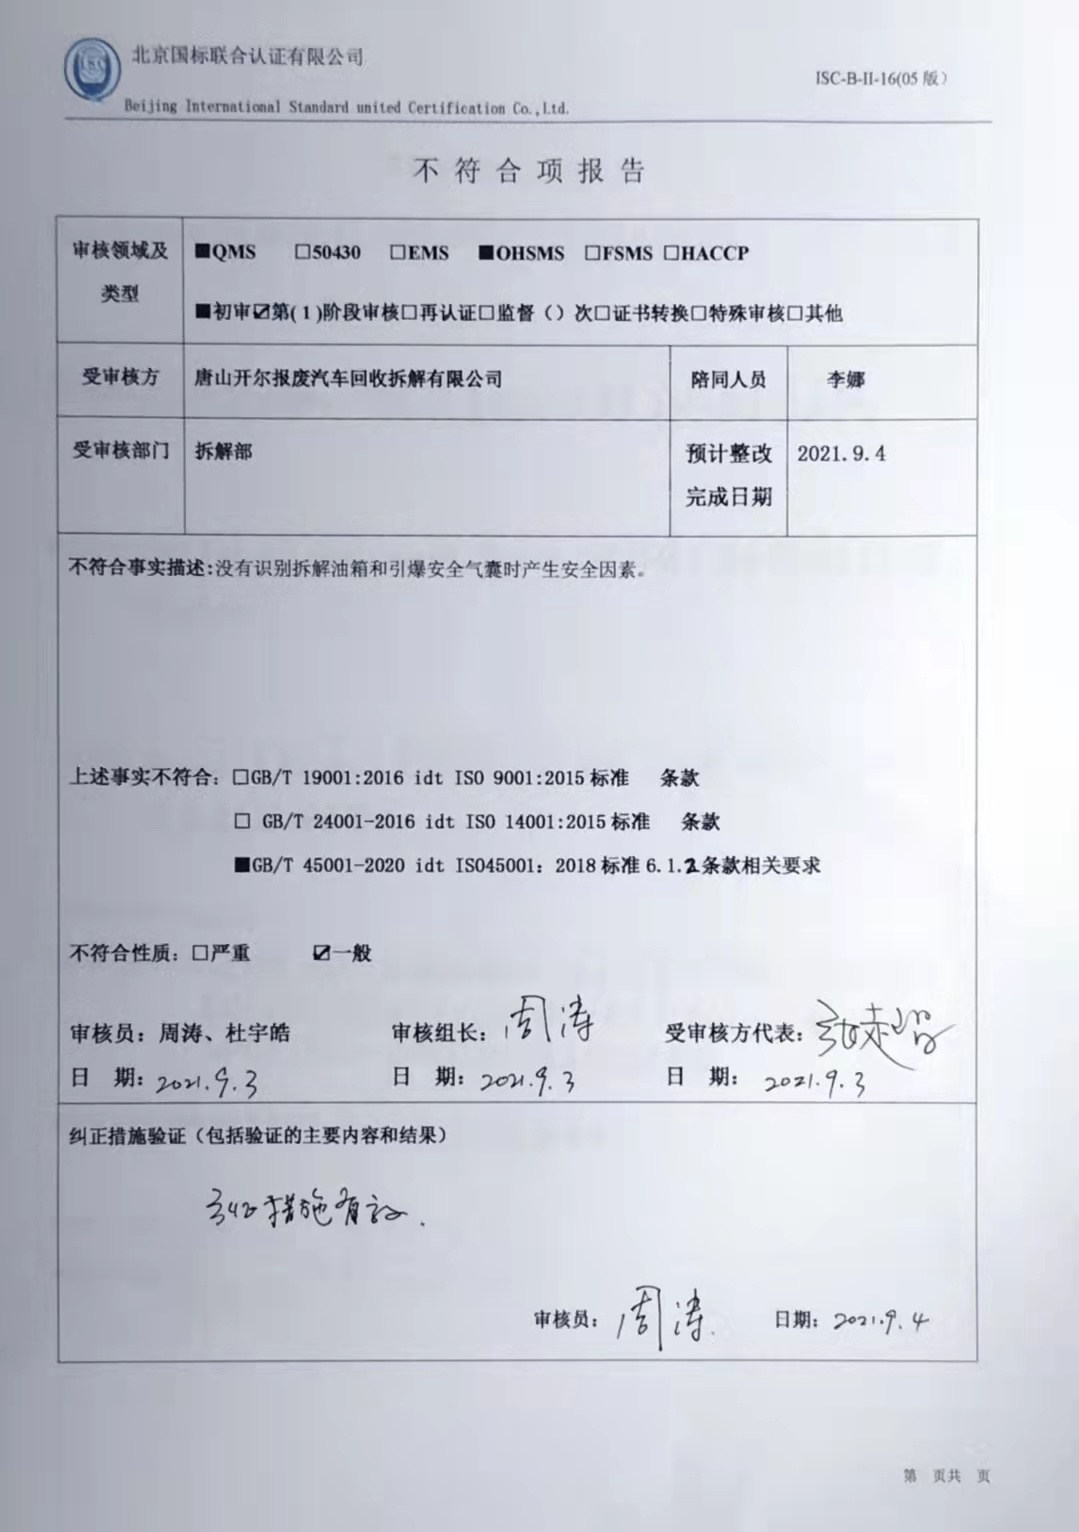 北京国标联合认证有限公司
ISC-B-II-16(05 版)
Beijing International Standard united Certification Co.,Ltd.
不符合项报告
审核领域及类型
■QMS □50430 □EMS ■OHSMS □FSMS □HACCP
■初审☑第(1)阶段审核□再认证□监督（）次□证书转换□特殊审核□其他
受审核方 唐山开尔报废汽车回收拆解有限公司 陪同人员 李娜
受审核部门 拆解部 预计整改完成日期 2021.9.4
不符合事实描述:没有识别拆解油箱和引爆安全气囊时产生安全因素。
上述事实不符合：□GB/T 19001:2016 idt ISO 9001:2015 标准 条款
□ GB/T 24001-2016 idt ISO 14001:2015 标准 条款
■GB/T 45001-2020 idt ISO45001：2018 标准 6.1.2 条款相关要求
不符合性质：□严重 ☑一般
审核员：周涛、杜宇皓 审核组长：周涛 受审核方代表：
日 期：2021.9.3 日 期：2021.9.3 日 期：2021.9.3
纠正措施验证（包括验证的主要内容和结果）
纠正措施有效.
审核员：周涛 日期：2021.9.4
第 页共 页